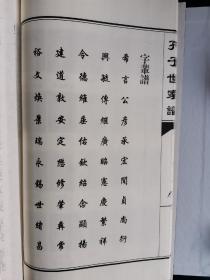 孔子世家譜
字輩譜
希言公彥承宏聞貞尚衍
興毓傳繼廣昭憲慶繁祥
令德維垂佑欽紹念顯揚
建道敦安定懋修肇彝常
裕文煥景瑞永錫世緒昌